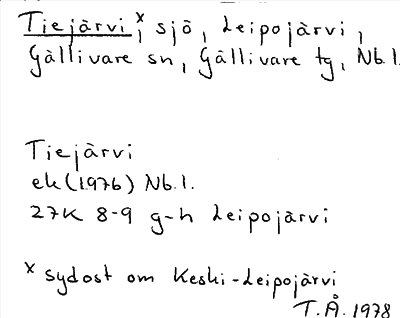 Tiejärvi x, sjö, Leipojärvi,
Gällivare sn, Gällivare tg, Nb.l.
Tiejärvi
ek (1976) Nb.l.
27K 8-9 g-h Leipojärvi
x sydost om Keski-Leipojärvi
T.Å. 1978